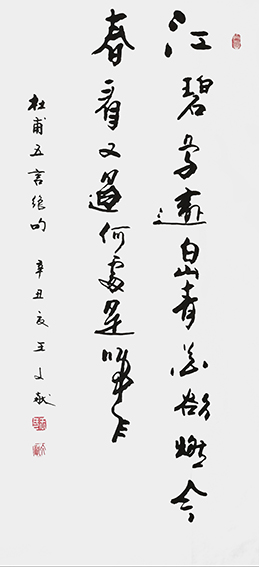 江碧鳥逾白山青花欲燃今
春看又過何處是歸年
杜甫五言絕句 辛丑夏王文